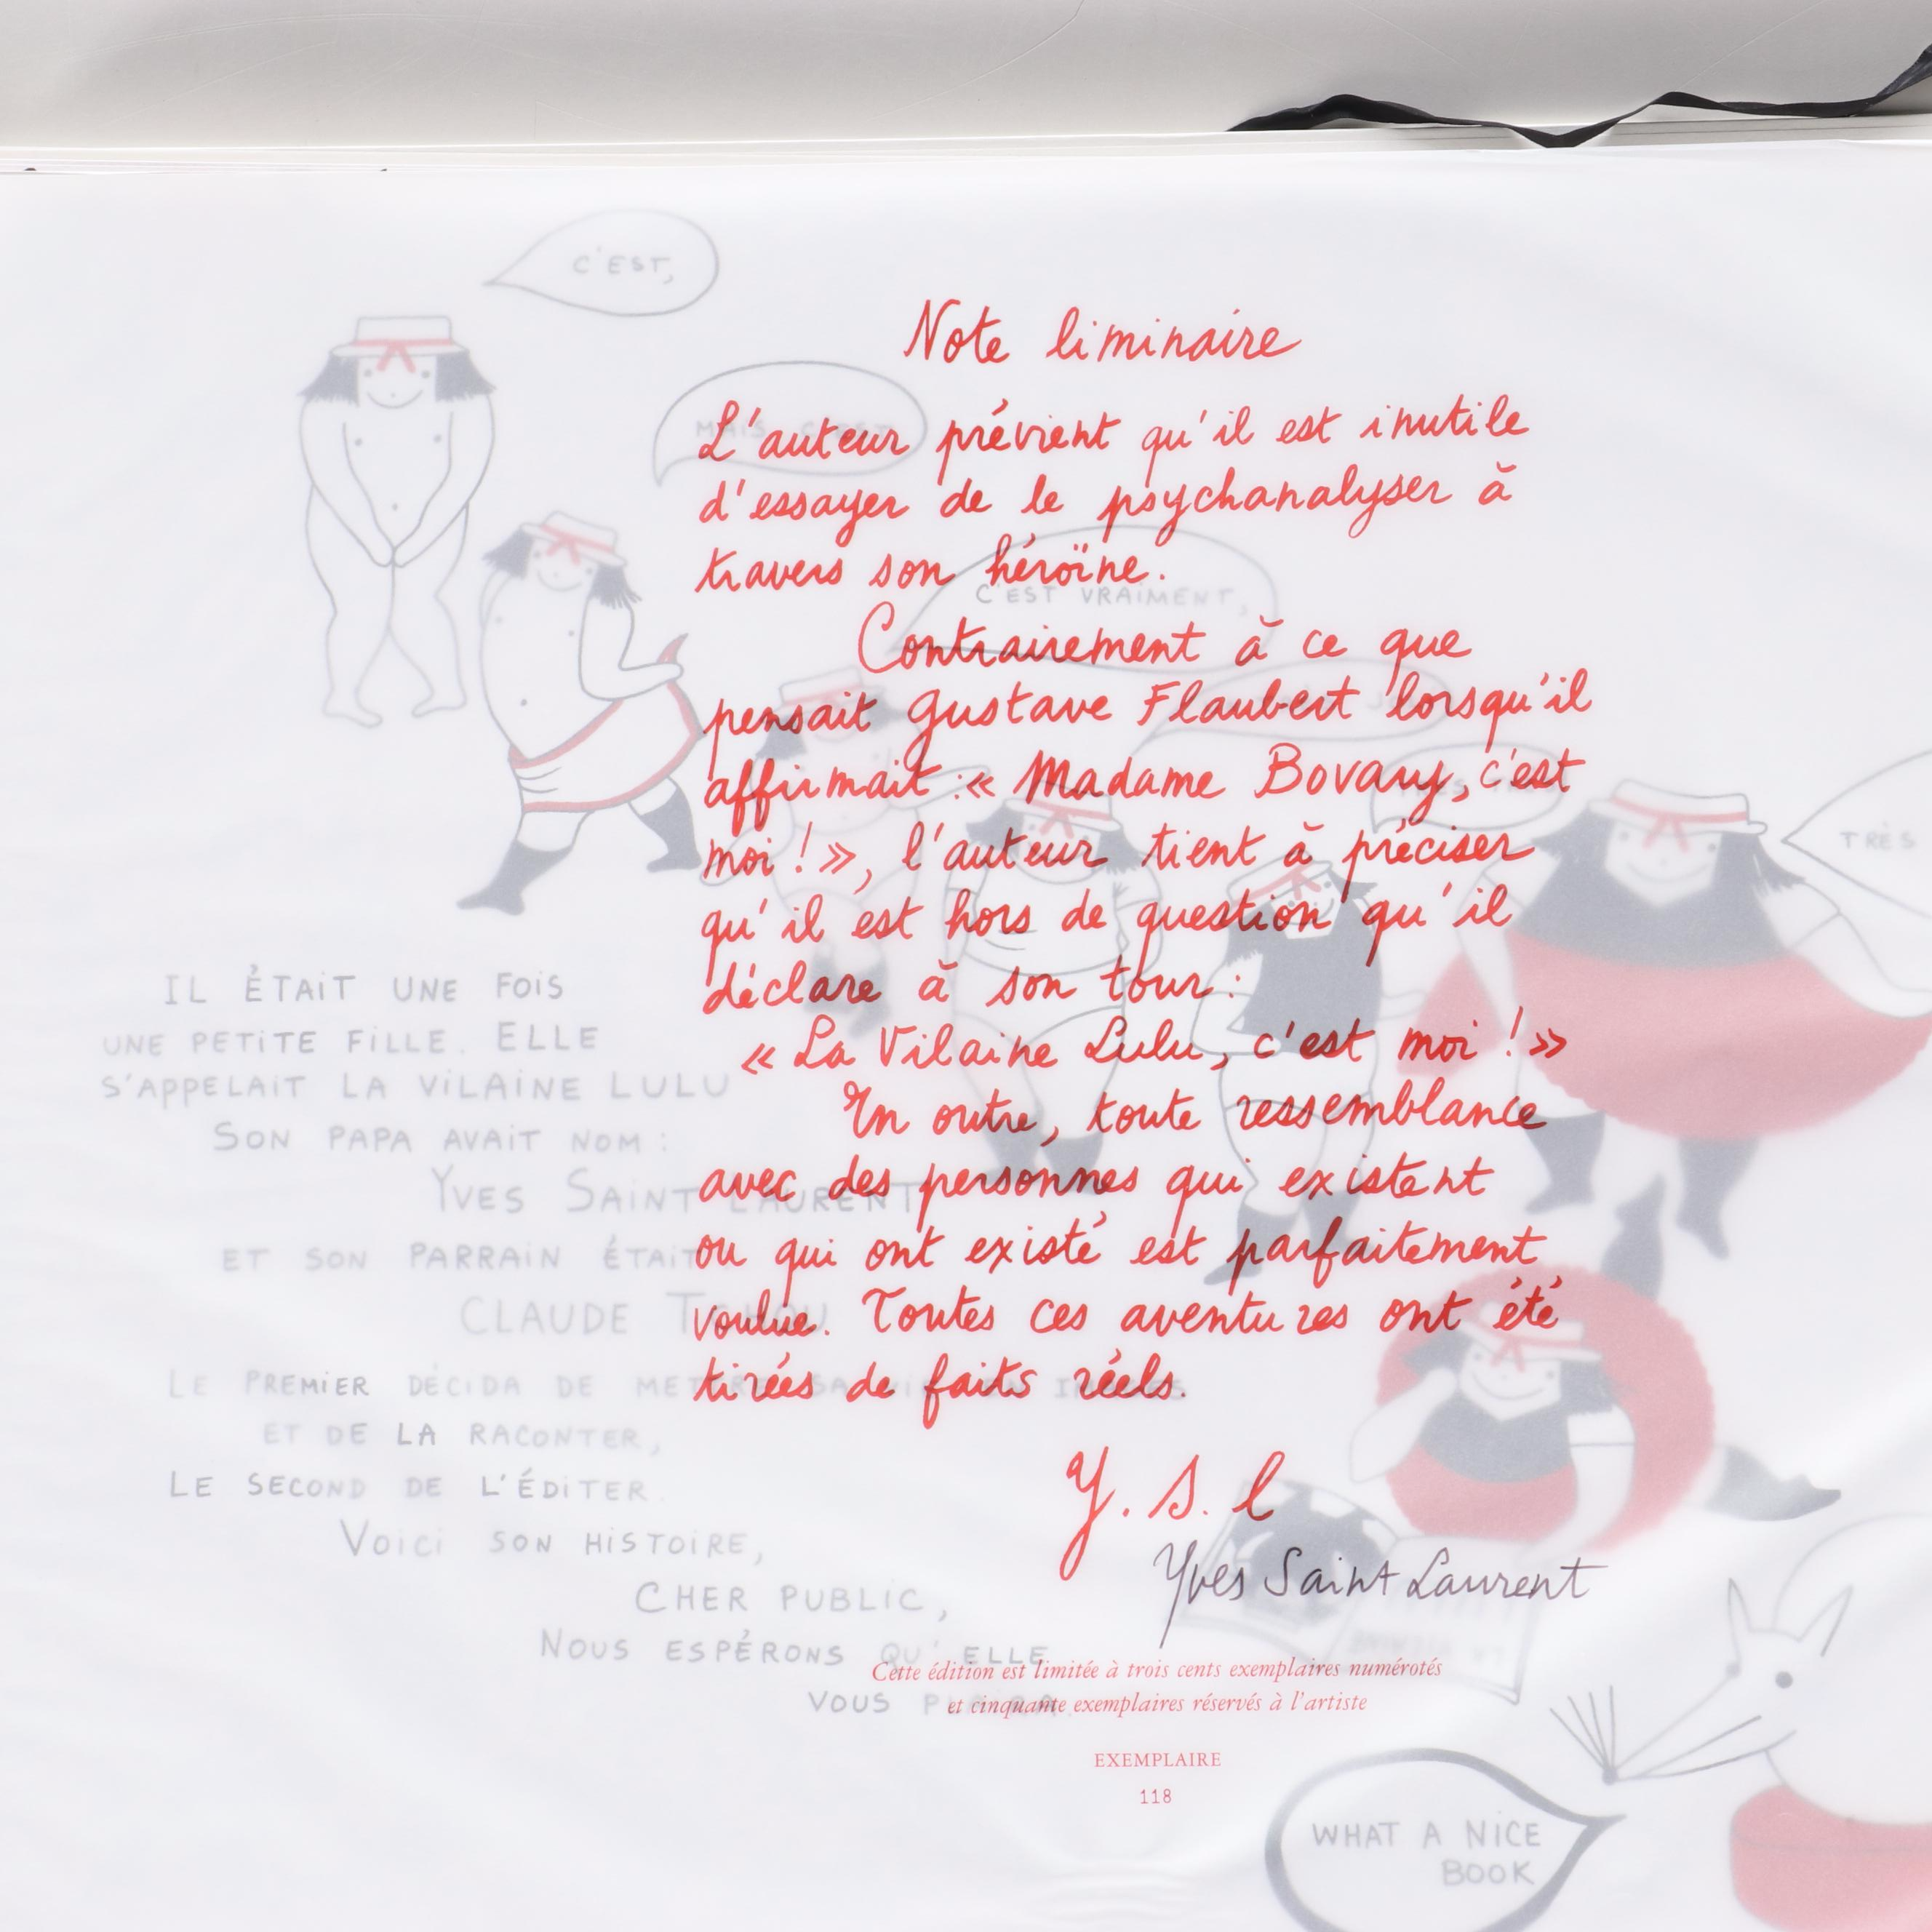 C'EST,
Note liminaire
MAIS C'EST
L'auteur prévient qu'il est inutile
d'essayer de le psychanalyser à
travers son héroïne.
C'EST VRAIMENT,
Contrairement à ce que
pensait Gustave Flaubert lorsqu'il
affirmait : « Madame Bovary, c'est
moi ! », l'auteur tient à préciser
qu'il est hors de question qu'il
déclare à son tour :
« La Vilaine Lulu, c'est moi ! »
En outre, toute ressemblance
avec des personnes qui existent
ou qui ont existé est parfaitement
voulue. Toutes ces aventures ont été
tirées de faits réels.
Y. S. L
Yves Saint Laurent
Cette édition est limitée à trois cents exemplaires numérotés
et cinquante exemplaires réservés à l'artiste
EXEMPLAIRE
118
TRÈS
IL ÉTAIT UNE FOIS
UNE PETITE FILLE. ELLE
S'APPELAIT LA VILAINE LULU
SON PAPA AVAIT NOM :
YVES SAINT LAURENT
ET SON PARRAIN ÉTAIT
CLAUDE TCHOU
LE PREMIER DÉCIDA DE METTRE SA VIE EN IMAGES
ET DE LA RACONTER,
LE SECOND DE L'ÉDITER.
VOICI SON HISTOIRE,
CHER PUBLIC,
NOUS ESPÉRONS QU'ELLE
VOUS PLAIRA.
WHAT A NICE
BOOK